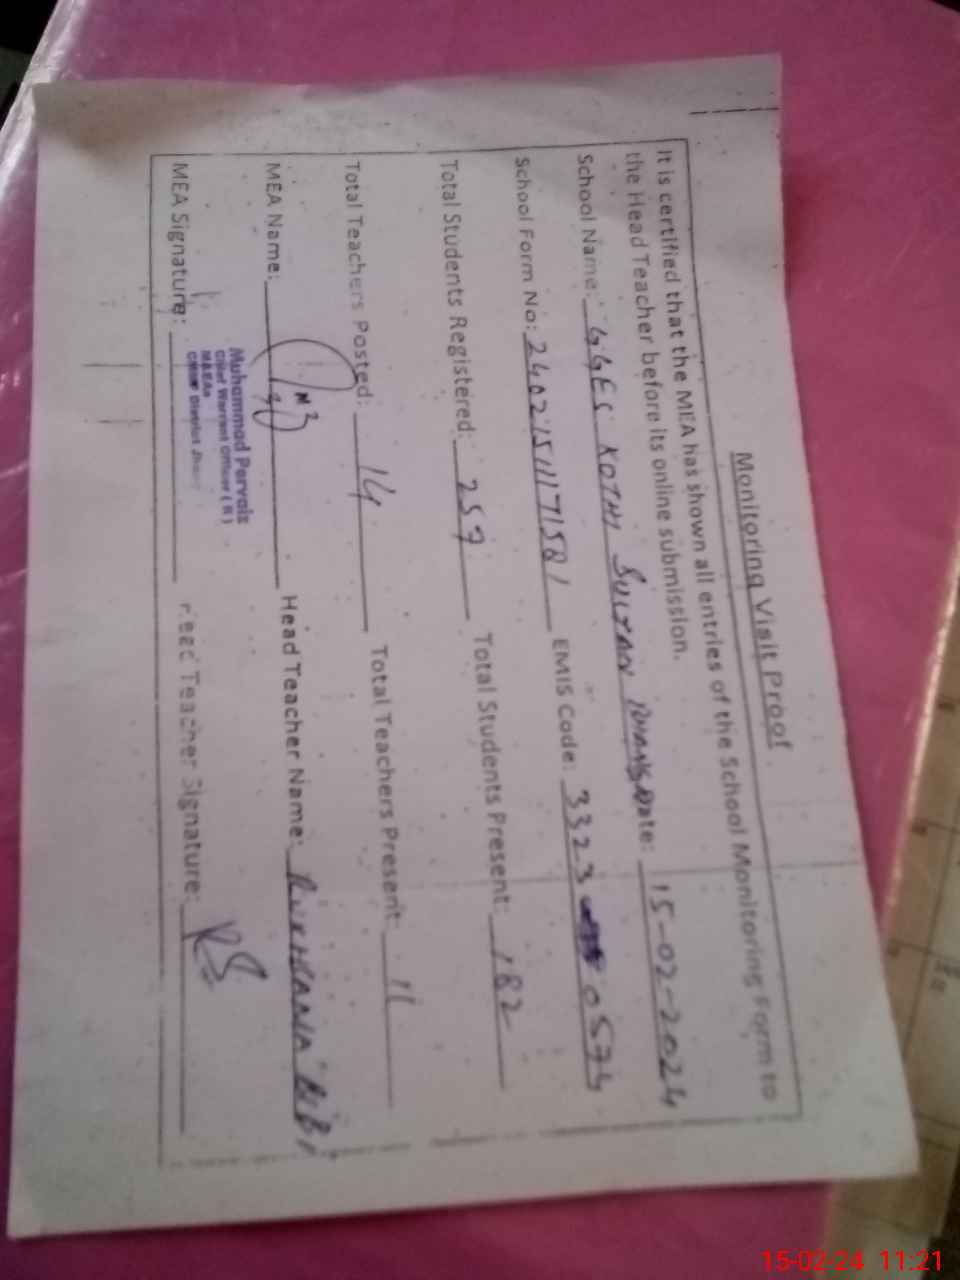 Monitoring Visit Proof
It is certified that the MEA has shown all entries of the School Monitoring Form to
the Head Teacher before its online submission.
School Name: GGES KOTHI SULTAN Date: 15-02-2024
School Form No: EMIS Code: 3323 0574
Total Students Registered: 257 Total Students Present: 182
Total Teachers Posted: 14 Total Teachers Present: 11
MEA Name: Head Teacher Name: RUKHSANA BIBI
Muhammad Pervaiz
Chief Warrant Officer (R)
MEA Signature: Head Teacher Signature: RS
15-02-24 11:21